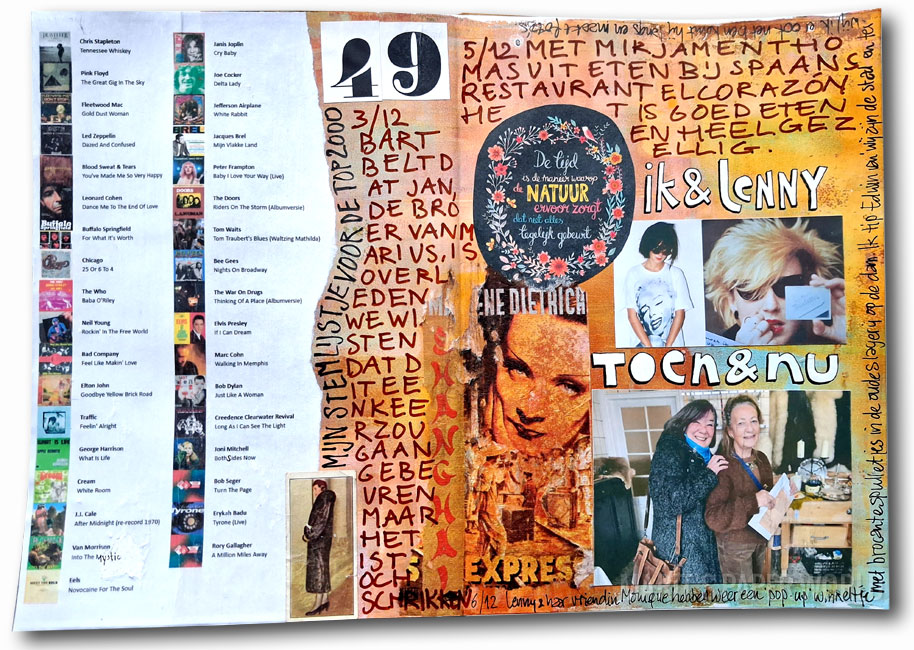 Chris Stapleton
Tennessee Whiskey
Pink Floyd
The Great Gig In The Sky
Fleetwood Mac
Gold Dust Woman
Led Zeppelin
Dazed And Confused
Blood Sweat & Tears
You've Made Me So Very Happy
Leonard Cohen
Dance Me To The End Of Love
Buffalo Springfield
For What It's Worth
Chicago
25 Or 6 To 4
The Who
Baba O'Riley
Neil Young
Rockin' In The Free World
Bad Company
Feel Like Makin' Love
Elton John
Goodbye Yellow Brick Road
Traffic
Feelin' Alright
George Harrison
What Is Life
Cream
White Room
J.J. Cale
After Midnight (re-record 1970)
Van Morrison
Into The Mystic
Eels
Novocaine For The Soul
Janis Joplin
Cry Baby
Joe Cocker
Delta Lady
Jefferson Airplane
White Rabbit
Jacques Brel
Mijn Vlakke Land
Peter Frampton
Baby I Love Your Way (Live)
The Doors
Riders On The Storm (Albumversie)
Tom Waits
Tom Traubert's Blues (Waltzing Mathilda)
Bee Gees
Nights On Broadway
The War On Drugs
Thinking Of A Place (Albumversie)
Elvis Presley
If I Can Dream
Marc Cohn
Walking In Memphis
Bob Dylan
Just Like A Woman
Creedence Clearwater Revival
Long As I Can See The Light
Joni Mitchell
Both Sides Now
Bob Seger
Turn The Page
Erykah Badu
Tyrone (Live)
Rory Gallagher
A Million Miles Away
MIJN STEMLIJSTJE VOOR DE TOP 2000
49
3/12
BART
BELTD
AT JAN,
DE BRO
ER VAN M
ARIUS, IS
OVERL
EDEN
WE WI
STEN
DAT D
IT EE
N KEE
R ZOU
GAAN
GEBE
UREN
MAAR
HET
IS T
OCH
SCHRIKKEN
5/12 MET MIRJAM EN THO
MAS UIT ETEN BIJ SPAANS
RESTAURANT EL CORAZÓN.
HE T IS GOED ETEN
EN HEEL GEZ
ELLIG.
De tijd
is de manier waarop
de NATUUR
ervoor zorgt
dat niet alles
tegelijk gebeurt
ik & Lenny
MA ENE DIETRICH
SHANGHAI
EXPRES
TOEN & NU
6/12 Lenny & haar vriendin Monique hebben weer een 'pop-up' winkeltje
met brocante spulletjes in de oude slagerij op de dam. Ik tip Edwin en wij zijn de stad en